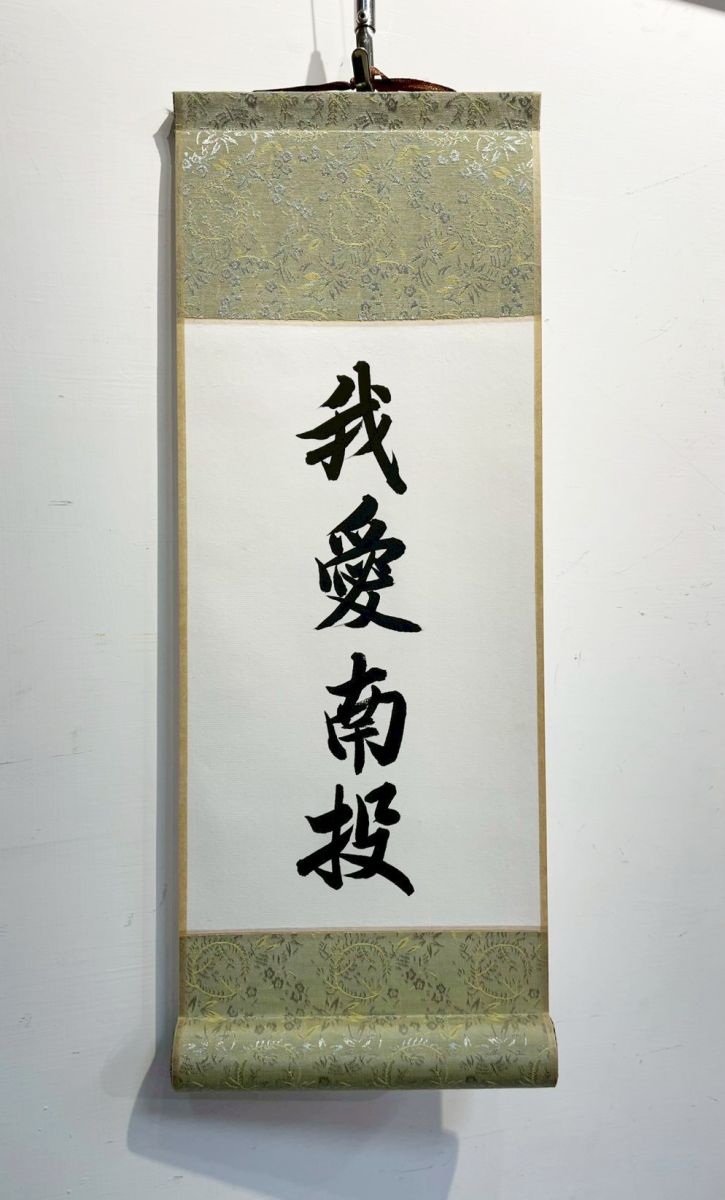 我愛南投